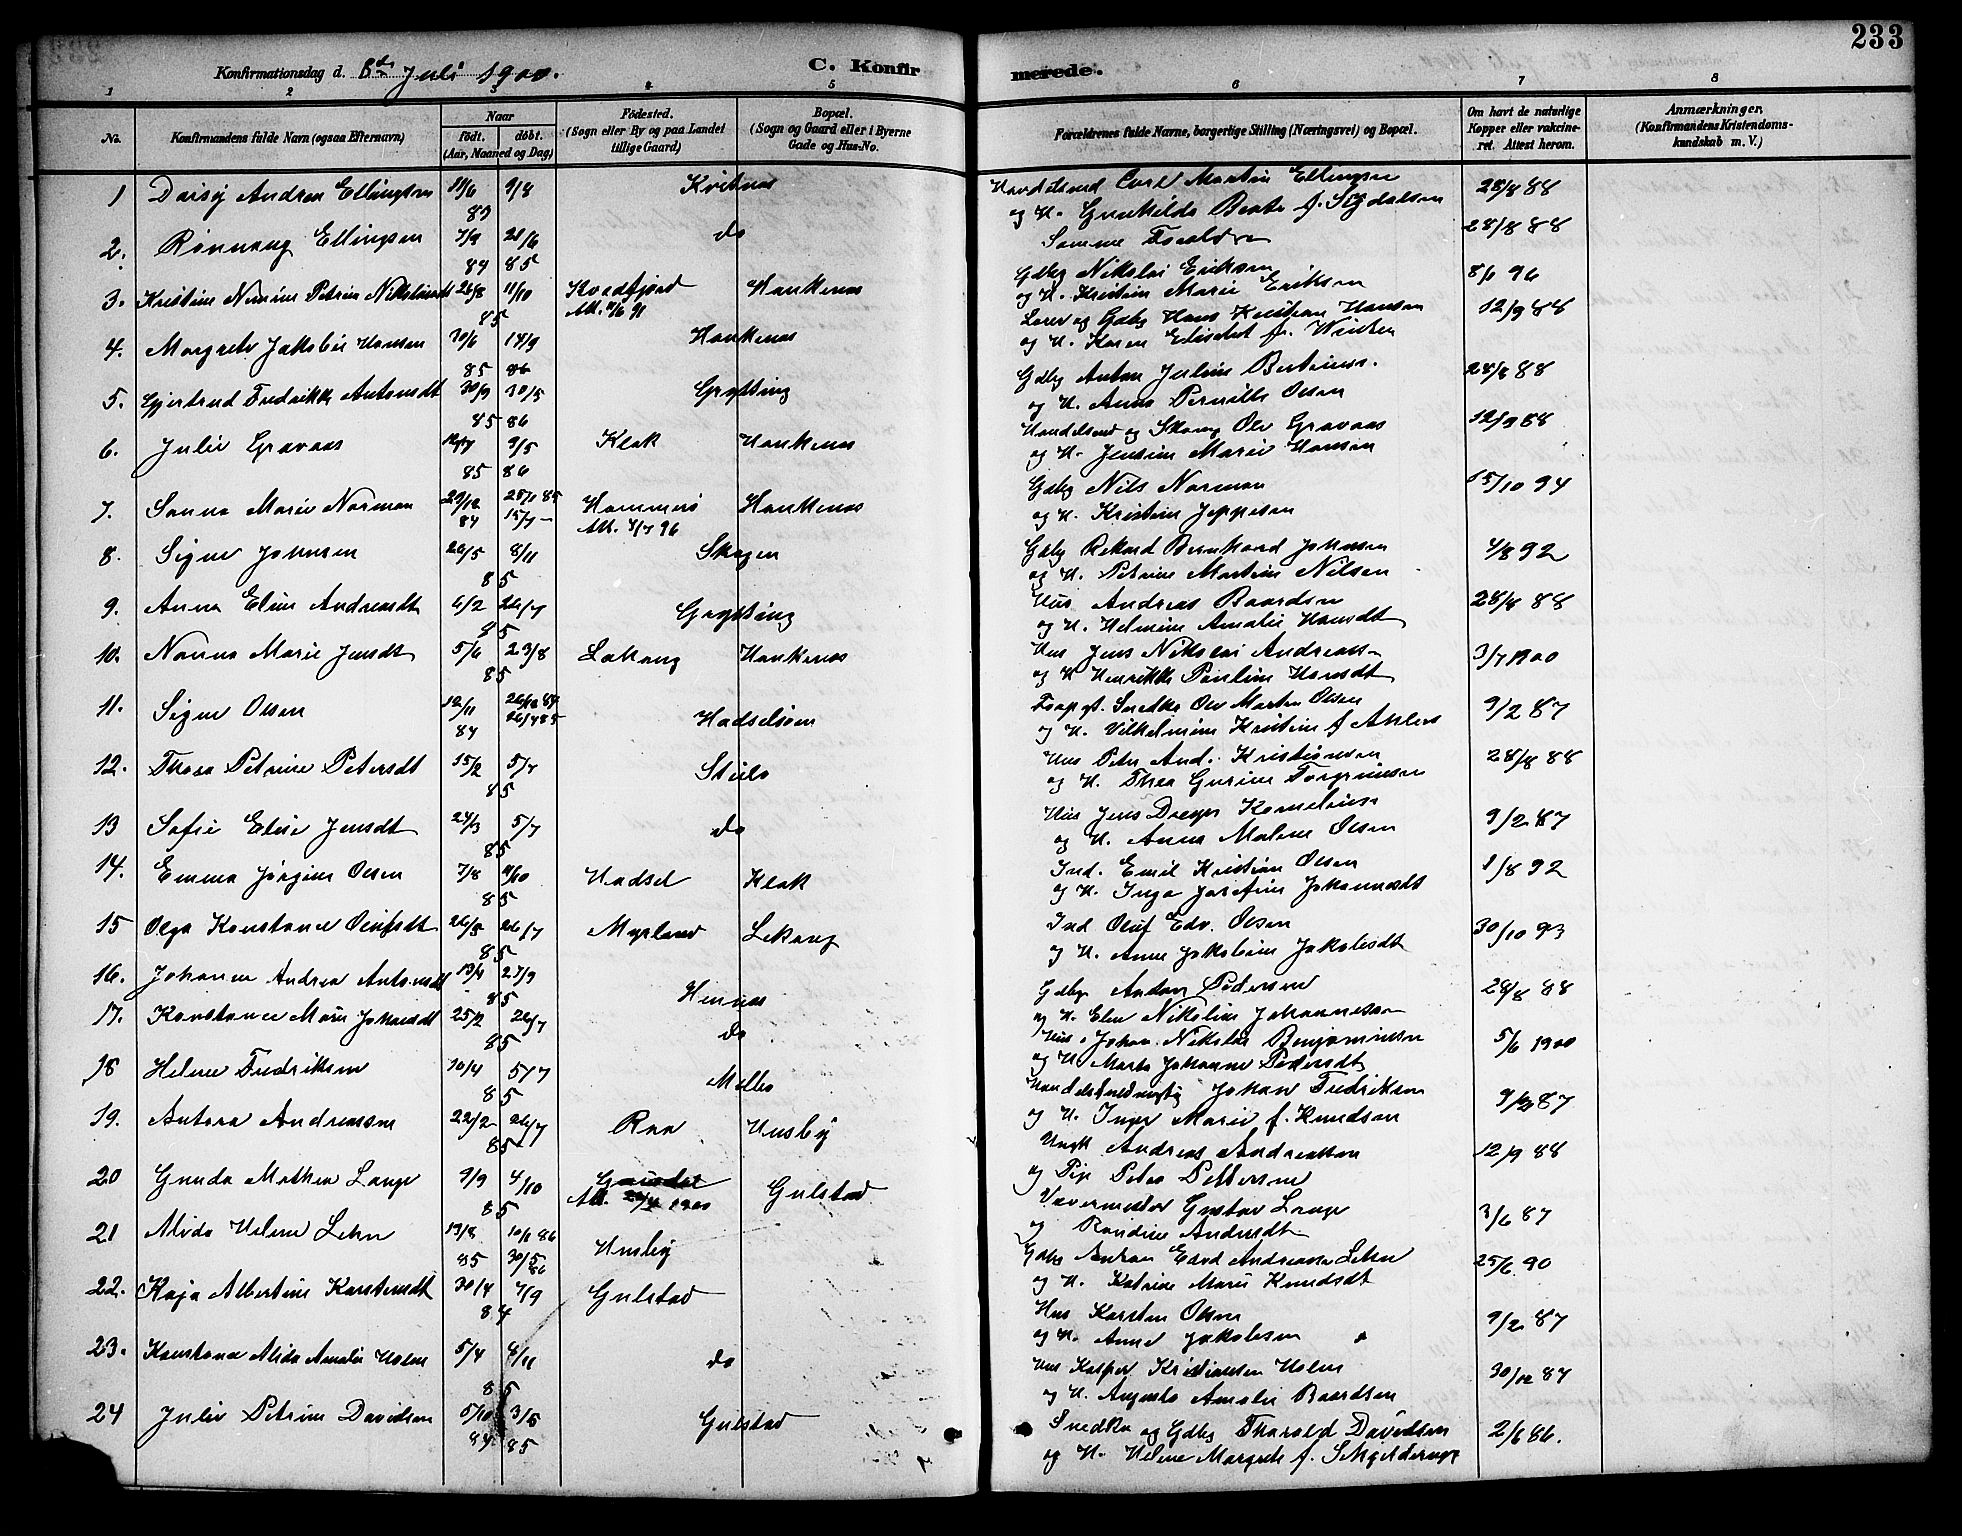 233
Konfirmationsdag d. 8de Juli 1900.
C. Konfirmerede.
1 2 3 4 5 6 7 8
No. Konfirmandens fulde Navn (ogsaa Efternavn) Naar født. døbt. (Aar, Maaned og Dag) Fødested. (Sogn eller By og paa Landet tillige Gaard) Bopæl. (Sogn og Gaard eller i Byerne Gade og Hus-No. Forældrenes fulde Navne, borgerlige Stilling (Næringsvei) og Bopæl. Om havt de naturlige Kopper eller vakcineret. Attest herom. Anmærkninger, (Konfirmandens Kristendomskundskab m. V.)
1 Daisy Andrea Ellingsen 11/6 9/8 Kvitnes Handelsmd Carl Martin Ellingsen 28/8 88
85 og H. Gunhilda Beate f. Sigdalsen
2. Rønnaug Ellingsen 7/9 21/6 do Samme Forældre 28/8 88
84 85
3. Kristine Nimine Petrine Nikolaisdt 26/8 11/10 Kvedfjord Haukenes Gdbg Nikolai Eriksen 8/1 96
85 Att. 11/6 91 og H. Kristine Marie Eriksen
4. Margrete Jakobie Hansen 30/6 14/9 Haukenes Lærer og Gdbg Hans Kristian Hansen 12/9 88
85 86 og H. Karen Elisabet f. Winter
5. Gjertrud Fredrikke Antonsdt 30/9 30/5 Grytting Gdbg Anton Julius Bertinus. 28/8 88
85 86 og H. Anna Pernille Olsen
6. Julie Gravaas 9/5 Klak Haukenes Handelsmd og Skomg Ole Gravaas 12/9 88
85 86 og H. Jensine Marie Hansen
7. Sanna Marie Norman 29/12 25/1 85 Hammerø Haukenes Gdbg Nils Norman 15/10 94
84 15/7 — Att. 4/7 96 og H. Kristine Jeppesen
8. Signe Johnsen 26/5 8/11 Skagen Gdbg Rikard Bernhard Johnsen 4/8 92
85 og H. Petrine Martine Nilsen
9. Anna Eline Andreasdt 6/2 26/7 Grytting Hus Andreas Baardsen 28/8 88
85 og H. Helmine Amalie Hansdt
10. Nanna Marie Jensdt 5/6 23/8 Lekang Haukenes Hus Jens Nikolai Andreass. 3/7 1900
85 og H Henrikke Pauline Hansdt
11. Signe Olsen 12/11 26/12 84 Hadselsøen Forpgt. Snedker Ole Morten Olsen 9/2 87
84 26/7 85 og H. Vilhelmine Kristine f. Ahlers
12. Thora Petrine Petersdt 15/2 5/7 Stilo Hus Peter And. Kristiansen 28/8 88
85 og H. Thea Gurine Torgrimsen
13 Sofie Elise Jensdt 24/3 5/7 do Hus Jens Dreyer Korneliuss 9/2 87
85 og H. Anna Malene Olsen
14. Emma Jørgine Olsen 7/8 4/10 Hadsel Klak Ind. Emil Kristian Olsen 1/8 92
85 og H. Inga Josefine Johannesdt
15 Olga Konstance Olufsdt 26/5 26/7 Myrland Lekang Ind Oluf Edv. Olsen 30/10 93
85 og H. Anne Jakobine Jakobsdt
16. Johanne Andrea Antonsdt 13/4 27/9 Hennes Gdbg Anton Pedersen 28/8 88
85 og H. Eline Nikoline Johannessen
17. Konstance Marie Johansdt 25/2 26/7 do Hus. Johan Nikolai Benjaminsen 5/6 1900
85 og H Marta Johanne Pedersdt
18 Helene Fredriksen 10/4 5/7 Melbo Handelsfuldmægtig Johan Fredriksen 9/2 87
85 og H. Inger Marie f. Knudsen
19. Antora Andreassen 22/2 26/7 Raa Husby Ungk Andreas Andreassen 12/9 88
85 og Pige Petra Pettersen
20 Gunda Mathea Lange 9/9 4/10 Gulstad Vævermester Gustav Lange 3/6 87
85 Att. 1900 og Randine Andersdt
21 Alvida Helene Lehn 13/8 10/1 86 Husby Gdbg Anton Edvd Andreassen Lehn 25/6 90
85 30/5 86 og H. Katrine Marie Knudsdt
22. Kaja Albertine Karstensdt 30/4 7/9 Gulstad Hus Karsten Olsen 9/2 87
84 og H. Anne Jakobsen
23. Konstance Alida Amalie Holm 5/4 8/11 do Hus Kasper Kristiansen Holm 30/12 87
85 og H. Augusta Amalie Baardsen
24 Julie Petrine Davidsen 5/10 3/5 Gulstad Snedker og Gdbg Tharald Davidsen 2/6 86.
84 85 og H. Helene Margrete f. Schjelderup